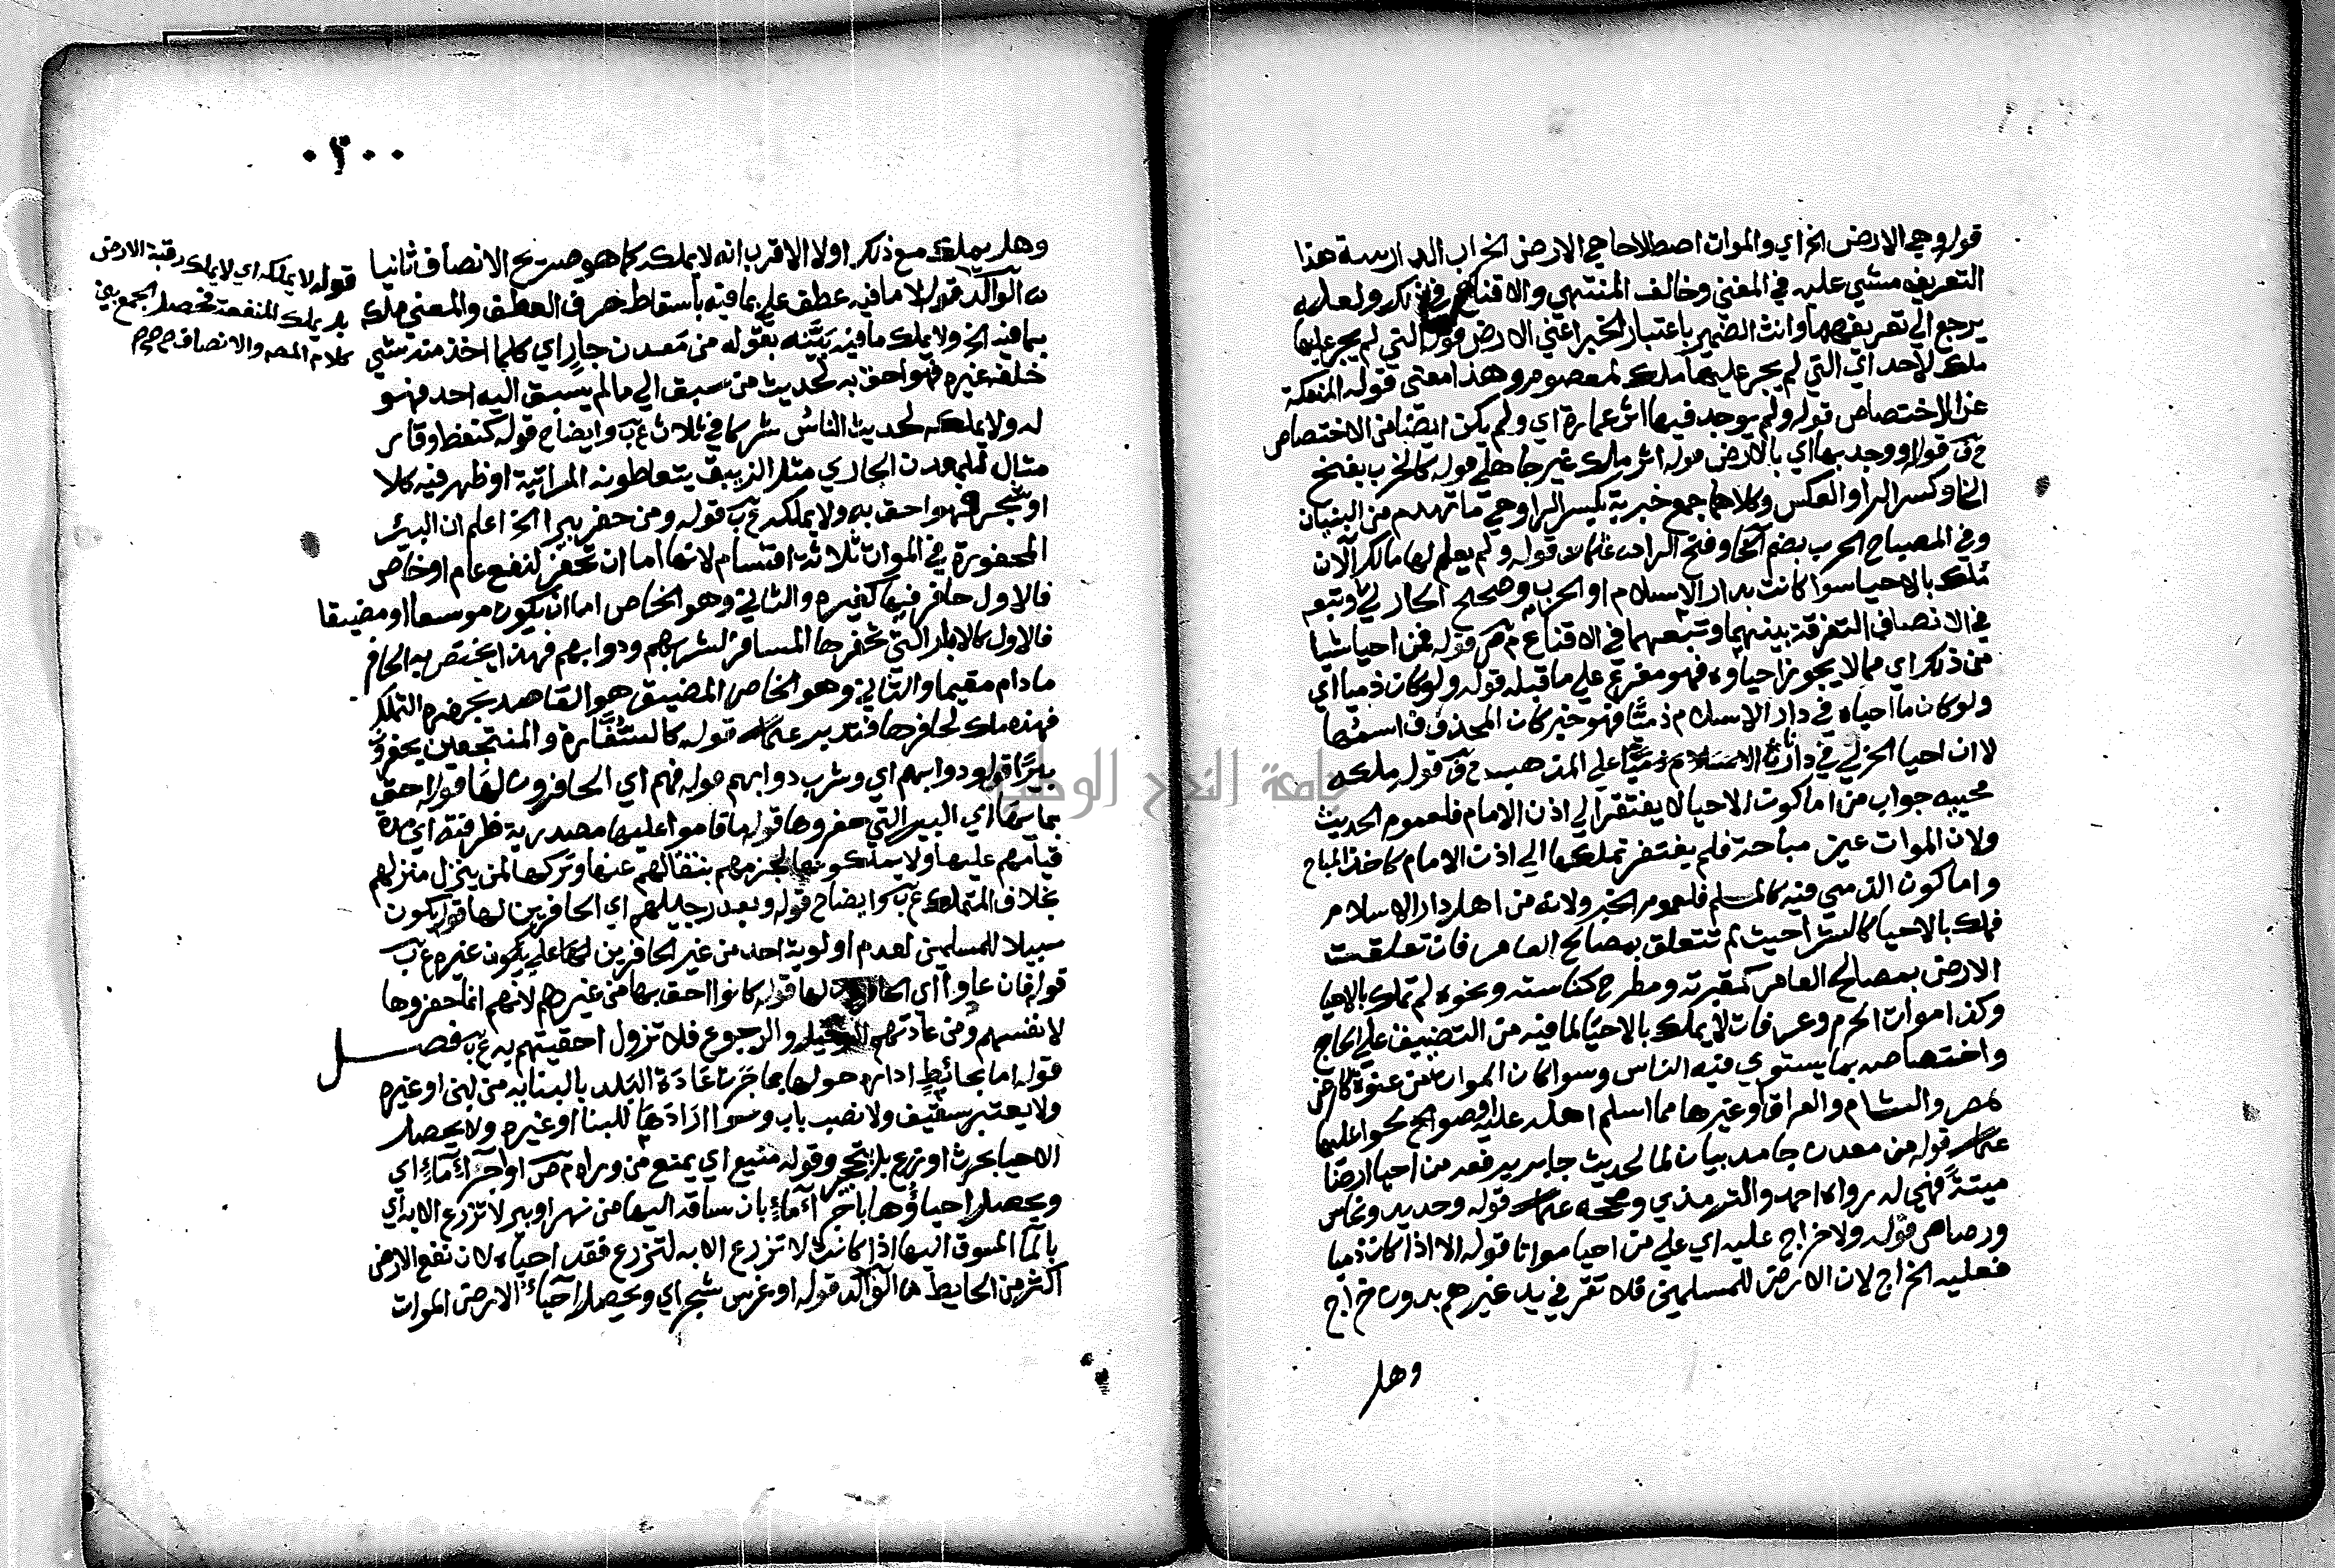 قوله وهي الارض الخ اي والموات اصطلاحا هي الارض الخراب الدارسة هذا
التعريف مشي عليه في المغني وخالف المنتهي والاقناع في ولعله
يرجع الي تعريفهما وانث الضمير باعتبار الخبر اعني الارض قوله التي لم يجر عليها
ملك لاحد اي التي لم يجر عليها ملك لمعصوم وهذا معني قوله المنفكة
عن الاختصاص قوله ولم يوجد فيها اثر عمارة اي ولم يكن ايضا من الاختصاص
قوله او وجد بها اي بالارض قوله اثر ملك غير جاهلي قوله كالخرب بفتح
الخا وكسر الرا والعكس وكلاهما جمع خربة بكسر الرا وهي ما تهدم من البنيان
وفي المصباح الخرب بضم الخا وفتح الرا قوله ولم يعلم لها مالك الآن
ملك بالاحيا سوا كانت بدار الاسلام او الحرب وصححه الحارثي وتبعه
في الانصاف التفرقة بينهما وتبعهما في الاقناع م ص قوله فمن احيا شيا
من ذلك اي مما لا يجوز احياوه فهو مفرع علي ما قبله قوله ولو كان ذميا اي
ولو كان ما احياه في دار الاسلام ذميًّا فهو خبر كان المحذوف اسمها
لا ان احيا الحربي في دارنا علي المذهب ح ف قوله ملكه
محييه جواب من اما كون الاحيا لا يفتقر الي اذن الامام فلعموم الحديث
ولان الموات عين مباحة فلم يفتقر تملكها الي اذن الامام كاخذ المباح
واما كون الذمي فيه كالمسلم فلعموم الخبر ولانه من اهل دار الاسلام
فملك بالاحيا كالشرا حيث لم تتعلق بمصالح العامر فان تعلقت
الارض بمصالح العامر كمقبرته ومطرح كناسته ونحوه لم تملك بالاحيا
وكذا موات الحرم وعرفات لا يملك بالاحيا لما فيه من التضييق علي الحاج
واختصاصه بما يستوي فيه الناس وسوا كان الموات من عنوة كارض
مصر والشام والعراق او غيرها مما اسلم اهله عليه او صولح اهلها
قوله من معدن جامد بيان لما لحديث جابر يرفعه من احيا ارضا
ميتة فهي له رواه احمد والترمذي وصححه قوله وحديد ونحاس
ورصاص قوله ولا خراج عليه اي علي من احيا مواتا قوله الا اذا كان ذميا
فعليه الخراج لان الارض للمسلمين فلا تقر في يد غيرهم بدون خراج
وهل
٣٠٠
وهل يملك مع ذلك اولا الاقرب انه لا يملك كما هو صريح الانصاف ثانيا
الوالد قوله لا ما فيه عطف علي بما فيه باسقاط حرف العطف والمعني ملك
بما فيه الخ ولا يملك ما فيه بَيَّنه بقوله من مَعدن جارٍ اي كلما اخذ منه شي
خلفه غيره فهو احق به لحديث من سبق الي ما لم يسبق اليه احد فهو
له ولا يملكه لحديث الناس شركا في ثلاث ع ب وايضاح قوله كنفط وقار
مثال للمعدن الجاري مثله الزيبق يتعاطونه المراتية او ظهر فيه كلا
او شجر فهو احق به ولا يملكه ع ب قوله ومن حفر بيرا الخ اعلم ان البئر
المحفورة في الموات ثلاثة اقسام لانها اما ان تحفر لنفع عام او خاص
فالاول حافر فيها كغيره والثاني وهو الخاص اما ان يكون موسعا او مضيقا
فالاول كالابار التي تحفرها المسافر لشربهم ودوابهم فهذا يختص به الحافر
ما دام مقيما والثاني وهو الخاص المضيق هو القاصد بحفره التملك
فهذه ملك لحافرها فتدبر قوله كالسُّفَّارة والمنتجعين يحفرون
بيرًا قوله ودوابهم اي وشرب دوابهم قوله فهم اي الحافرون لها قوله احق
بمائها اي البير التي حفروها قوله ما قاموا عليها مصدرية ظرفية اي مدة
قيامهم عليها ولا يملكونها لجزمهم بنتقالهم عنها وتركها لمن ينزل منزلهم
بخلاف المتملك ع ب وايضاح قوله وبعد رحيلهم اي الحافرين لها قوله تكون
سبيلا للمسلمين لعدم اولوية احد من غير الحافرين لها علي غيره ع ب
قوله فان عاودا اي لها قوله كانوا احق بها من غيرهم لانهم انما حفروها
لانفسهم ومن عادتهم الرحيل والرجوع فلا تزول احقيتهم به ع ب فصل
قوله اما بحائط ادارة حولها بما جَرَت عَادَة البلد بالبنا به من لبن او غيره
ولا يعتبر سقيف ولا نصب باب وسوا ارادها للبنا او غيره ولا يحصل
الاحيا بحرث او زرع وقوله منيع اي يمنع من وراه م ص او اجراء ماء اي
ويحصل احياؤها باجراء ماء بان ساقه اليها من نهر او بير لا تزرع الا به اي
بالما المسوق اليها اذا كانت لا تزرع الا به لتزرع فقد احياه لان نفع الارض
اكثر من الحايط الوالد قوله او غرس شجر اي ويحصل احياء الارض الموات
قوله لا يملكه اي لا يملك رقبة الارض
بل يملك المنفعة فحصل الجمع بين
كلام المص والانصاف
جامعة النجاح الوطنية